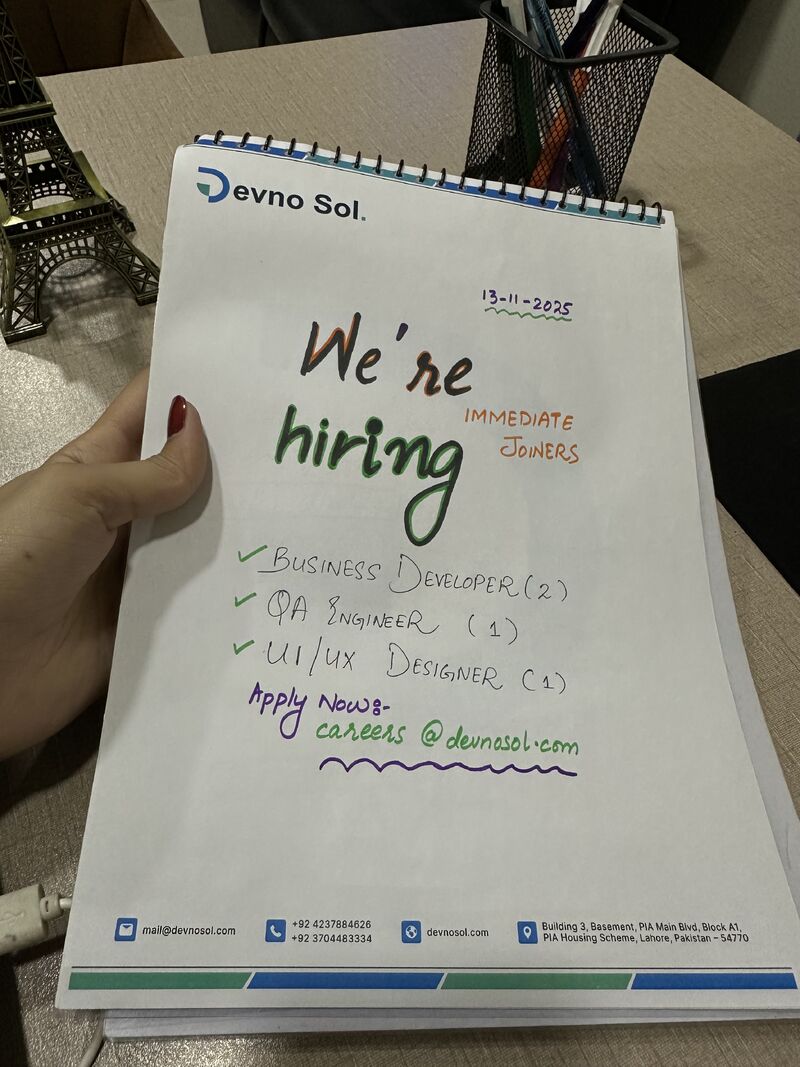 Devno Sol.
13-11-2025
We're
hiring
IMMEDIATE
JOINERS
BUSINESS DEVELOPER (2)
QA ENGINEER (1)
UI/UX DESIGNER (1)
Apply Now:-
careers @devnosol.com
mail@devnosol.com
+92 4237884626
+92 3704483334
devnosol.com
Building 3, Basement, PIA Main Blvd, Block A1,
PIA Housing Scheme, Lahore, Pakistan – 54770